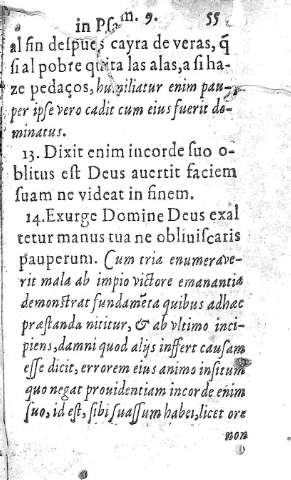 in Psm. 9. 55
al fin despues cayra de veras, q̃
si al pobre quita las alas, a si ha-
ze pedaços, humiliatur enim pau-
per ipse vero cadit cum eius fuerit do-
minatus.
13. Dixit enim incorde suo o-
blitus est Deus auertit faciem
suam ne videat in finem.
14. Exurge Domine Deus exal
tetur manus tua ne obliuiscaris
pauperum. Cum tria enumeraue-
rit mala ab impio victore emanantia
demonstrat fundamẽta quibus adhæc
præstanda nititur, & ab vltimo inci-
piens, damni quod alijs inffert causam
esse dicit, errorem eius animo insitum
quo negat prouidentiam incorde enim
suo, id est, sibi suassum habet, licet ore
non